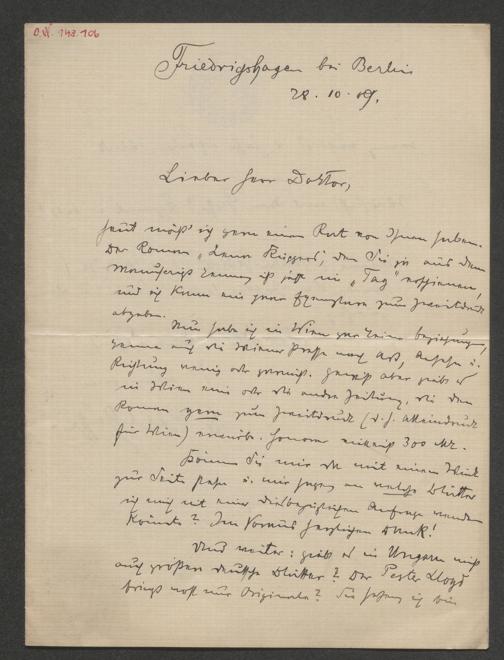 O.N. 148.106
Friedrigshagen bei Berlin
28. 10. 09.
Lieber Herr Doktor,
heut möcht ich gern einen Rat von Ihnen haben.
Der Roman „ ", den Sie ja aus dem
Manuscript kennen, ist jetzt im „Tag" erschienen,
und ich kann ein paar Exemplare zum Zweitdruck
abgeben.
Nun habe ich in Wien gar keine Beziehungen,
kenne auch die Wiener Presse nach Art, Ansehn u.
Richtung wenig oder garnicht. Gewiß aber giebt es
in Wien eine oder die andre Zeitung, die den
Roman gern zum Zweitdruck (d. h. Alleindruck
für Wien) erwirbt. Honorar 300 Mk.
Können Sie mir da mit einem Wink
zur Seite stehn u. mir sagen an welche Blätter
ich mich mit einer diesbezüglichen Anfrage wenden
könnte? Im Voraus herzlichen Dank!
Und weiter: giebt es in Ungarn nicht
auch größere deutsche Blätter? Der Pester Lloyd
bringt wohl nur Originale? Sie sehen, ich bin